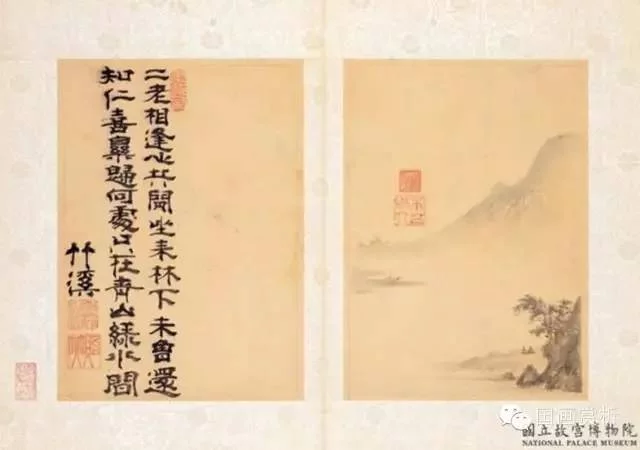 二老相逢心共閒坐来林下未曾還
知仁喜樂歸何處只在青山綠水間
竹溪
国画赏析
國立故宮博物院
NATIONAL PALACE MUSEUM